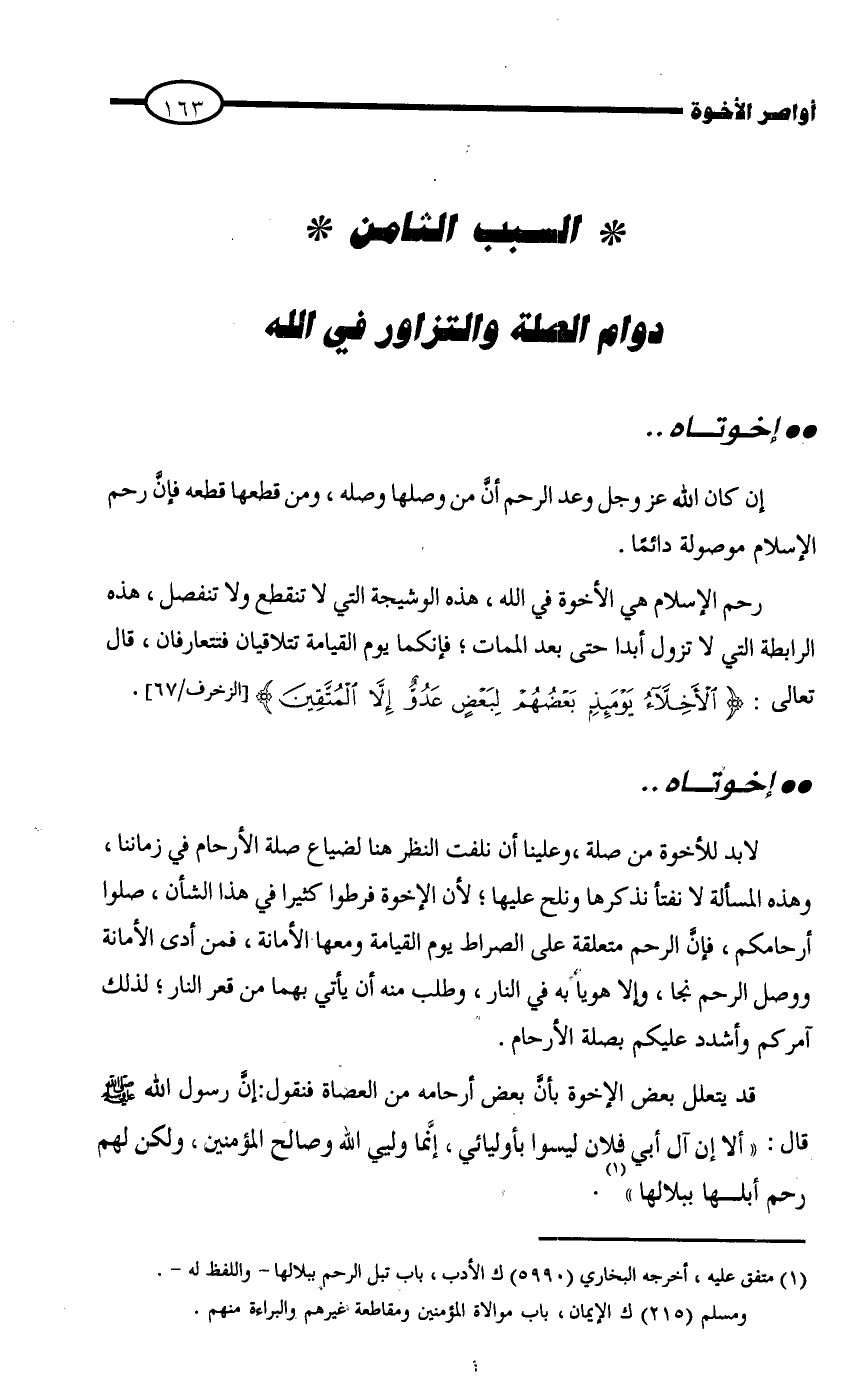 أواصر الأخوة ١٦٣
* السبب الثامن *
دوام الصلة والتزاور في الله
●● إخوتـــاه ..
إن كان الله عز وجل وعد الرحم أنَّ من وصلها وصله ، ومن قطعها قطعه فإنَّ رحم
الإسلام موصولة دائمًا .
رحم الإسلام هي الأخوة في الله ، هذه الوشيجة التي لا تنقطع ولا تنفصل ، هذه
الرابطة التي لا تزول أبدا حتى بعد الممات ؛ فإنكما يوم القيامة تتلاقيان فتتعارفان ، قال
تعالى : ﴿ ٱلْأَخِلَّآءُ يَوْمَئِذٍۭ بَعْضُهُمْ لِبَعْضٍ عَدُوٌّ إِلَّا ٱلْمُتَّقِينَ ﴾ [الزخرف/٦٧] .
●● إخوتـــاه ..
لابد للأخوة من صلة ،وعلينا أن نلفت النظر هنا لضياع صلة الأرحام في زماننا ،
وهذه المسألة لا نفتأ نذكرها ونلح عليها ؛ لأن الإخوة فرطوا كثيرا في هذا الشأن ، صلوا
أرحامكم ، فإنَّ الرحم متعلقة على الصراط يوم القيامة ومعها الأمانة ، فمن أدى الأمانة
ووصل الرحم نجا ، وإلا هويا به في النار ، وطلب منه أن يأتي بهما من قعر النار ؛ لذلك
آمركم وأشدد عليكم بصلة الأرحام .
قد يتعلل بعض الإخوة بأنَّ بعض أرحامه من العصاة فنقول:إنَّ رسول الله ﷺ
قال : « ألا إن آل أبي فلان ليسوا بأوليائي ، إنَّما وليي الله وصالح المؤمنين ، ولكن لهم
رحم أبلـــها ببلالها »(١) .
(١) متفق عليه ، أخرجه البخاري (٥٩٩٠) ك الأدب ، باب تبل الرحم ببلالها – واللفظ له – .
ومسلم (٢١٥) ك الإيمان ، باب موالاة المؤمنين ومقاطعة غيرهم والبراءة منهم .